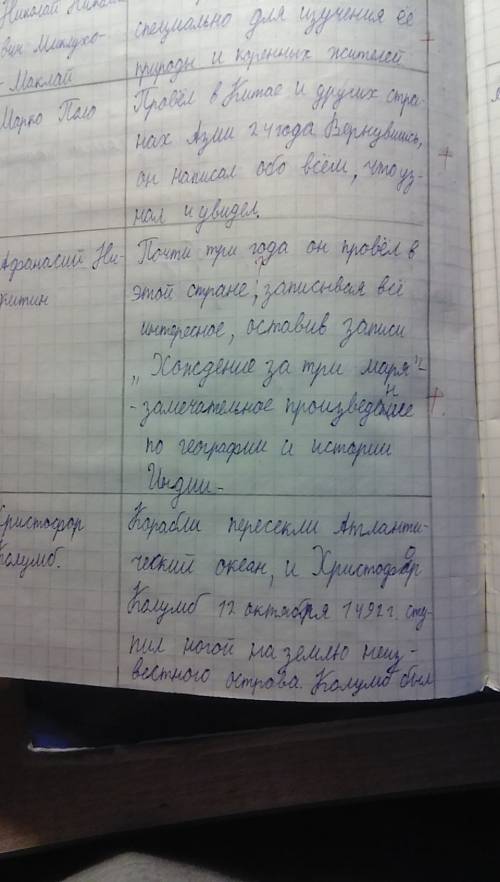 Николай Никола-
вич Миклухо-
- Маклай
специально для изучения её
природы и коренных жителей
Марко Поло
Провёл в Китае и других стра-
нах Азии 24 года Вернувшись,
он написал обо всём, что уз-
нал и увидел.
Афанасий Ни-
китин
Почти три года он провёл в
этой стране, записывая всё
интересное, оставив записи
„Хождение за три моря"-
-замечательное произведение
по географии и истории
Индии-
Христофор
Колумб.
Корабли пересекли Атланти-
ческий океан, и Христофор
Колумб 12 октября 1492 г. сту-
пил ногой на землю неиз-
вестного острова. Колумб был